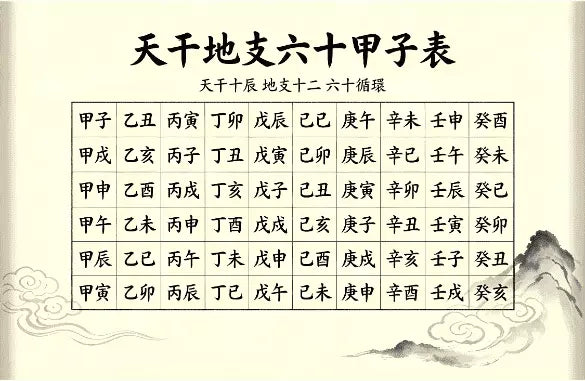 天干地支六十甲子表
天干十辰 地支十二 六十循環
甲子 乙丑 丙寅 丁卯 戊辰 己巳 庚午 辛未 壬申 癸酉
甲戌 乙亥 丙子 丁丑 戊寅 己卯 庚辰 辛巳 壬午 癸未
甲申 乙酉 丙戌 丁亥 戊子 己丑 庚寅 辛卯 壬辰 癸巳
甲午 乙未 丙申 丁酉 戊戌 己亥 庚子 辛丑 壬寅 癸卯
甲辰 乙巳 丙午 丁未 戊申 己酉 庚戌 辛亥 壬子 癸丑
甲寅 乙卯 丙辰 丁巳 戊午 己未 庚申 辛酉 壬戌 癸亥